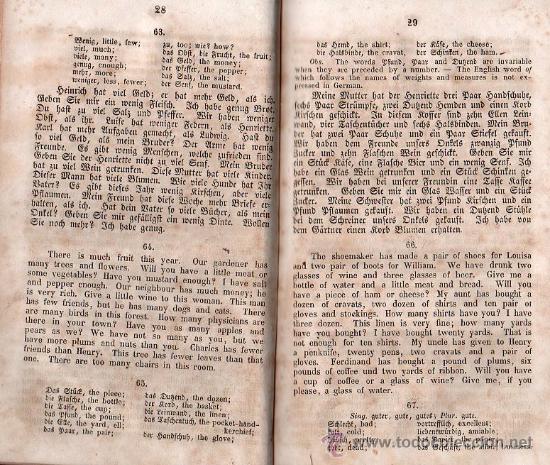 28
63.
Wenig, little, few;
viel, much;
viele, many;
genug, enough;
mehr, more;
weniger, less, fewer;
zu, too; wie? how?
das Obst, die Frucht, the fruit;
das Geld, the money;
der Pfeffer, the pepper;
das Salz, the salt;
der Senf, the mustard.
Heinrich hat viel Geld; er hat mehr Geld, als ich.
Geben Sie mir ein wenig Fleisch. Ich habe genug Brot.
Du hast zu viel Salz und Pfeffer. Wir haben weniger
Obst, als ihr. Luise hat weniger Federn, als Henriette.
Karl hat mehr Aufgaben gemacht, als Ludwig. Hast du
so viel Geld, als mein Bruder? Der Arme hat wenig
Freunde. Es gibt wenig Menschen, welche zufrieden sind.
Geben Sie der Henriette nicht zu viel Senf. Mein Bruder
hat zu viel Wein getrunken. Diese Mutter hat viele Kinder.
Dieser Mann hat viele Blumen. Wie viele Hunde hat Ihr
Vater? Es gibt dieses Jahr wenig Kirschen, aber viele
Pflaumen. Mein Freund hat diese Woche mehr Briefe er-
halten, als ich. Hat dein Vater so viele Bücher, als mein
Onkel? Geben Sie mir gefälligst ein wenig Dinte. Wollen
Sie noch mehr? Ich habe genug.
64.
There is much fruit this year. Our gardener has
many trees and flowers. Will you have a little meat or
some vegetables? Have you mustard enough? I have salt
and pepper enough. Our neighbour has much money; he
is very rich. Give a little wine to this woman. This man
has few friends, but he has many dogs and cats. There
are many birds in this forest. How many physicians are
there in your town? Have you as many apples and
pears as we? We have not so many as you, but we
have more plums and nuts than you. Charles has fewer
friends than Henry. This tree has fewer leaves than that
one. There are too many chairs in this room.
65.
Das Stück, the piece;
die Flasche, the bottle;
die Tasse, the cup;
das Pfund, the pound;
die Elle, the yard, ell;
das Paar, the pair;
das Dutzend, the dozen;
der Korb, the basket;
die Leinwand, the linen;
das Taschentuch, the pocket-hand-
kerchief;
der Handschuh, the glove;
29
das Hemd, the shirt;
die Halsbinde, the cravat,
der Käse, the cheese;
der Schinken, the ham.
Obs. The words Pfund, Paar and Dutzend are invariable
when they are preceded by a number. — The English word of
which follows the names of weights and measures is not ex-
pressed in German.
Meine Mutter hat der Henriette drei Paar Handschuhe,
sechs Paar Strümpfe, zwei Dutzend Hemden und einen Korb
Kirschen geschickt. In diesem Koffer sind zehn Ellen Lein-
wand, vier Taschentücher und sechs Halsbinden. Mein Bru-
der hat zwei Paar Schuhe und ein Paar Stiefel gekauft.
Wir haben dem Freunde unsers Onkels zwanzig Pfund
Zucker und zehn Flaschen Wein geschickt. Geben Sie mir
ein Stück Käse, eine Flasche Bier und ein wenig Senf. Ich
habe ein Glas Wein getrunken und ein Stück Schinken ge-
gessen. Wir haben bei unserer Freundin eine Tasse Kaffee
getrunken. Geben Sie mir ein Glas Wasser und ein Stück
Brod. Meine Schwester hat zwei Pfund Kirschen und ein
Pfund Pflaumen gekauft. Wir haben ein Dutzend Stühle
bei dem Schreiner unsers Onkels gekauft. Ich habe von
dem Gärtner einen Korb Blumen erhalten.
66.
The shoemaker has made a pair of shoes for Louisa
and two pair of boots for William. We have drunk two
glasses of wine and three glasses of beer. Give me a
bottle of water and a little meat and bread. Will you
have a piece of ham or cheese? My aunt has bought a
dozen of cravats, two dozen of shirts and ten pair of
gloves and stockings. How many shirts have you? I have
three dozen. This linen is very fine; how many yards
have you bought? I have bought twenty yards. That is
not enough for ten shirts. My uncle has given to Henry
a penknife, twenty pens, two cravats and a pair of
gloves. Ferdinand has bought a pound of plums, six
pounds of coffee and two yards of ribbon. Will you have
a cup of coffee or a glass of wine? Give me, if you
please, a glass of water.
67.
Sing. guter, gute, gutes; Plur. gute.
Schlecht, bad;
kalt, cold;
vortrefflich, excellent;
liebenswürdig, amiable;
todocoleccion